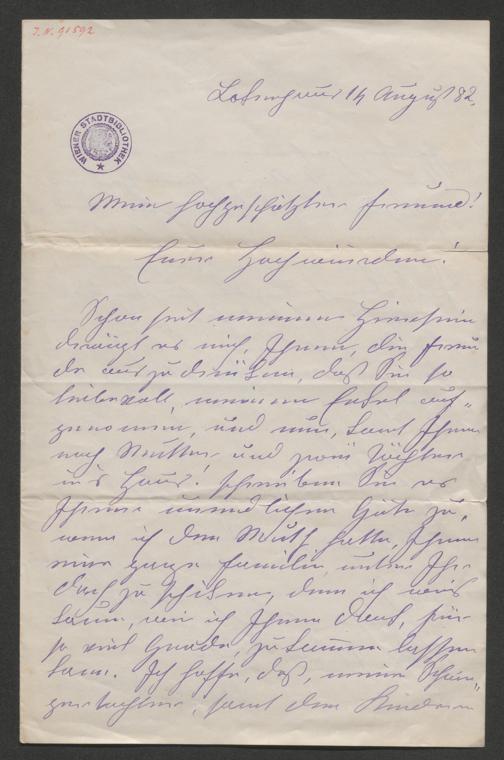 J. N. 91592
14 August 82.
WIENER STADTBIBLIOTHEK
Mein hochgeschätzter Freund!
Euer Hochwürden!
Schon seit meinem Hiersein
drängt es mich, Ihnen, die Freu
de auszudrüken, daß Sie so
liebevoll, meinen Enkel auf-
genomen, und nun, samt Ihnen
noch Mutter und zwei Töchter
in's Haus! schreiben Sie es
Ihrer unendlichen Güte zu,
wenn ich den Muth hatte, Ihnen
eine ganze Familie, unter Ihr
Dach zu schiken, denn ich weis
kaum, wie ich Ihnen Dank, für
so viel Gnade, zukommen lassen
kann. Ich hoffe, daß, meine Schwie-
gertochter, samt den Kindern